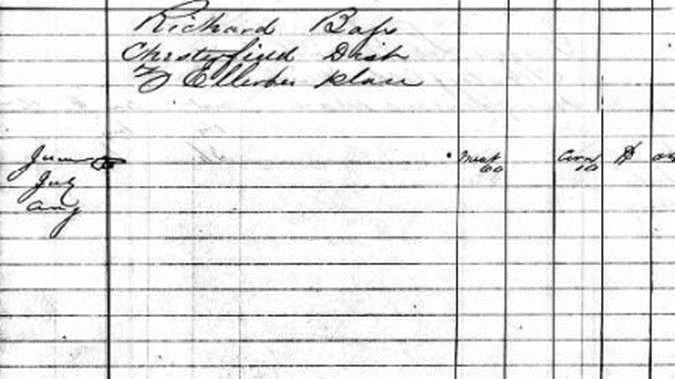 Richard Bass
Chesterfield Dist
Ellerbe place
June Meat Corn $
60 10
July
Aug